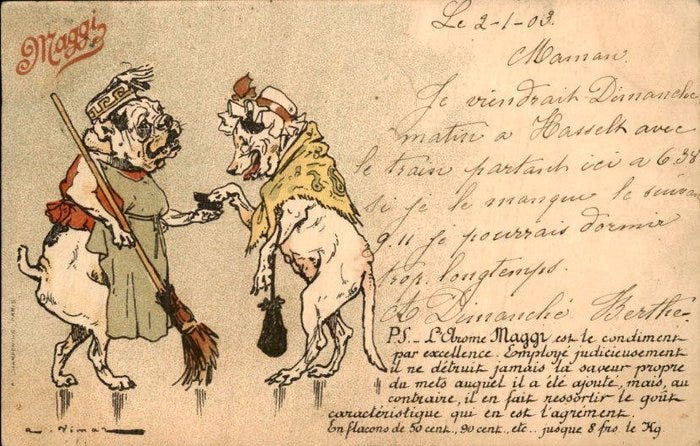 Maggi
Le 2-1-03.
Maman.
Je viendrait Dimanche
matin a Hasselt avec
le train partant ici a 6.38
si je le manque le suivan
q.u je pourrais dormir
trop longtemps.
A Dimanche Berthe
P.S._ L'Arome Maggi est le condiment
par excellence. Employé judicieusement
il ne détruit jamais la saveur propre
du mets auquel il a été ajouté, mais, au
contraire, il en fait ressortir le goût
caractéristique qui en est l'agrément.
En flacons de 50 cent., 90 cent., etc.. jusque 8 frs. le Kg
A. Vimar